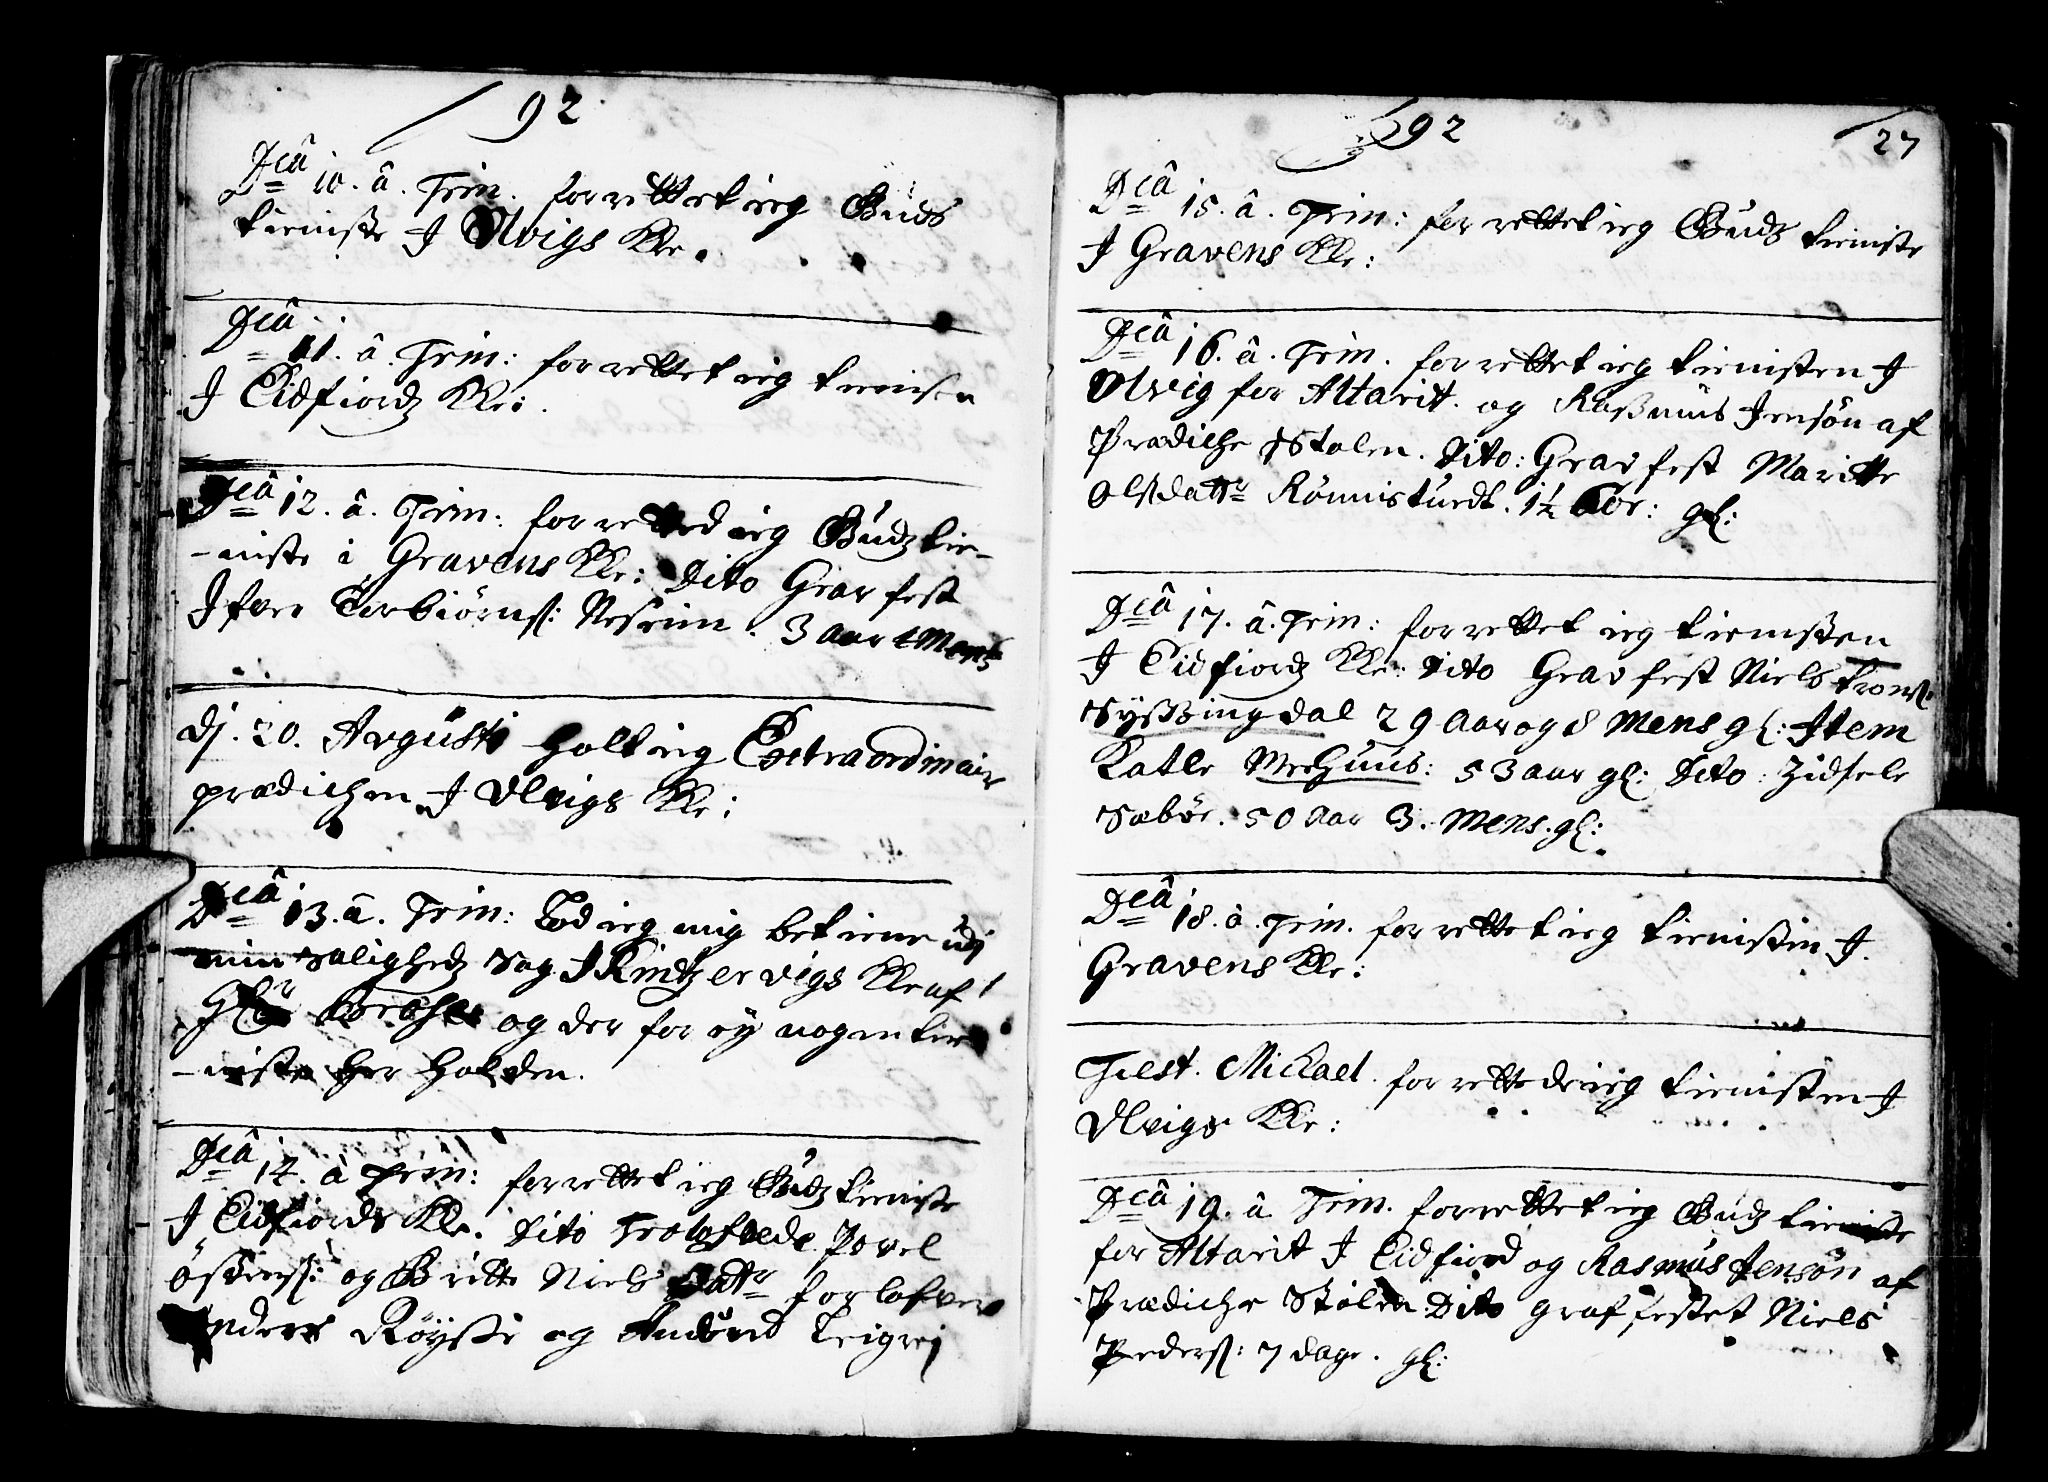 92
Dca 10. â. Trin. forrettet ieg Guds
tieniste J Olvigs Kke.
Dca 11. â. Trin: forrettet ieg tienisten
J Eidfiordz Kke:
Dca 12. â. Trin: forretted ieg Gudz tie-
-niste i Gravens Kke: Dito Grav fest
Ifver Torbiörns: Neseim. 3 aar
dj. 20. Avgusti holt ieg Extraordinair
prædichen J Vlvigs Kke:
Dca 13. â. Trin: Lod ieg mig betiene udj
min Salighedz Sag J Kintzervigs Kke af
og der for ey nogen tie
-niste her holden.
Dca 14. â Trin: forrettet ieg Gudz tieniste
J Eidfiordz Kke. Dito Trolofvede Povel
östens: og Britte Niels Datr forlofvere
Anders Röysse og Amund Leigrej
92
27
Dca 15. â. Trin: forrettet ieg Gudz tieniste
J Gravens Kke:
Dca 16. â. Trin. forrettet ieg tienisten J
Olvig for Altarit. og Rasmus Jensön af
Prædiche Stolen. Dito: Grav fest Maritte
Olsdattr Rönnistuedt. 1½ gl:
Dca 17. â. Trin: forrettet ieg tienisten
J Eidfiordz Kke: Dito Grav fest Niels
Sysszingdal 29 Aar og 8 Mens gl: Item
Katle Mrehuus: 53 aar gl: Dito: Zidsele
Sæböe. 50 Aar 3. Mens. gl:
Dca 18. â. Trin. forrettet ieg tienisten J.
Gravens Kke:
Fest. Michael. forrettede ieg tienisten J
Vlvigs Kke:
Dca 19. â. Trin. forrettet ieg Gudz tieniste
for Altarit J Eidfiord og Rasmus Jensön af
Prædiche Stolen Dito graf festet Niels
Peders: 7 dage. gl: